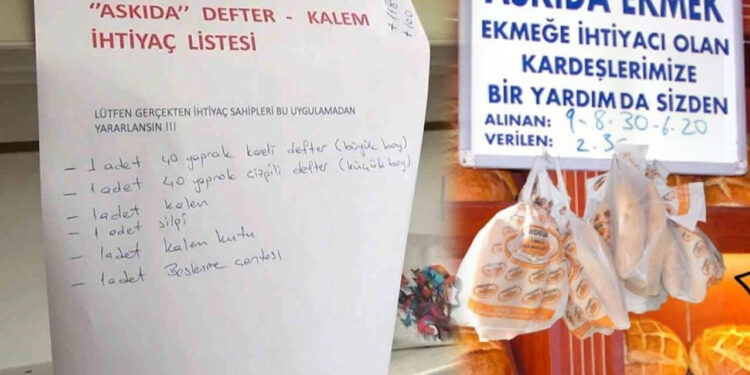 "ASKIDA" DEFTER - KALEM
İHTİYAÇ LİSTESİ
LÜTFEN GERÇEKTEN İHTİYAÇ SAHİPLERİ BU UYGULAMADAN
YARARLANSIN !!!
- 1 adet 40 yaprak kareli defter (büyük boy)
- 1 adet 40 yaprak çizgili defter (küçük boy)
- 1 adet kalem
- 1 adet silgi
- 1 adet kalem kutu
- 1 adet Beslenme çantası
ASKIDA EKMEK
EKMEĞE İHTİYACI OLAN
KARDEŞLERİMİZE
BİR YARDIM DA SİZDEN
ALINAN: 9-8.30-6.20
VERİLEN: 2.3